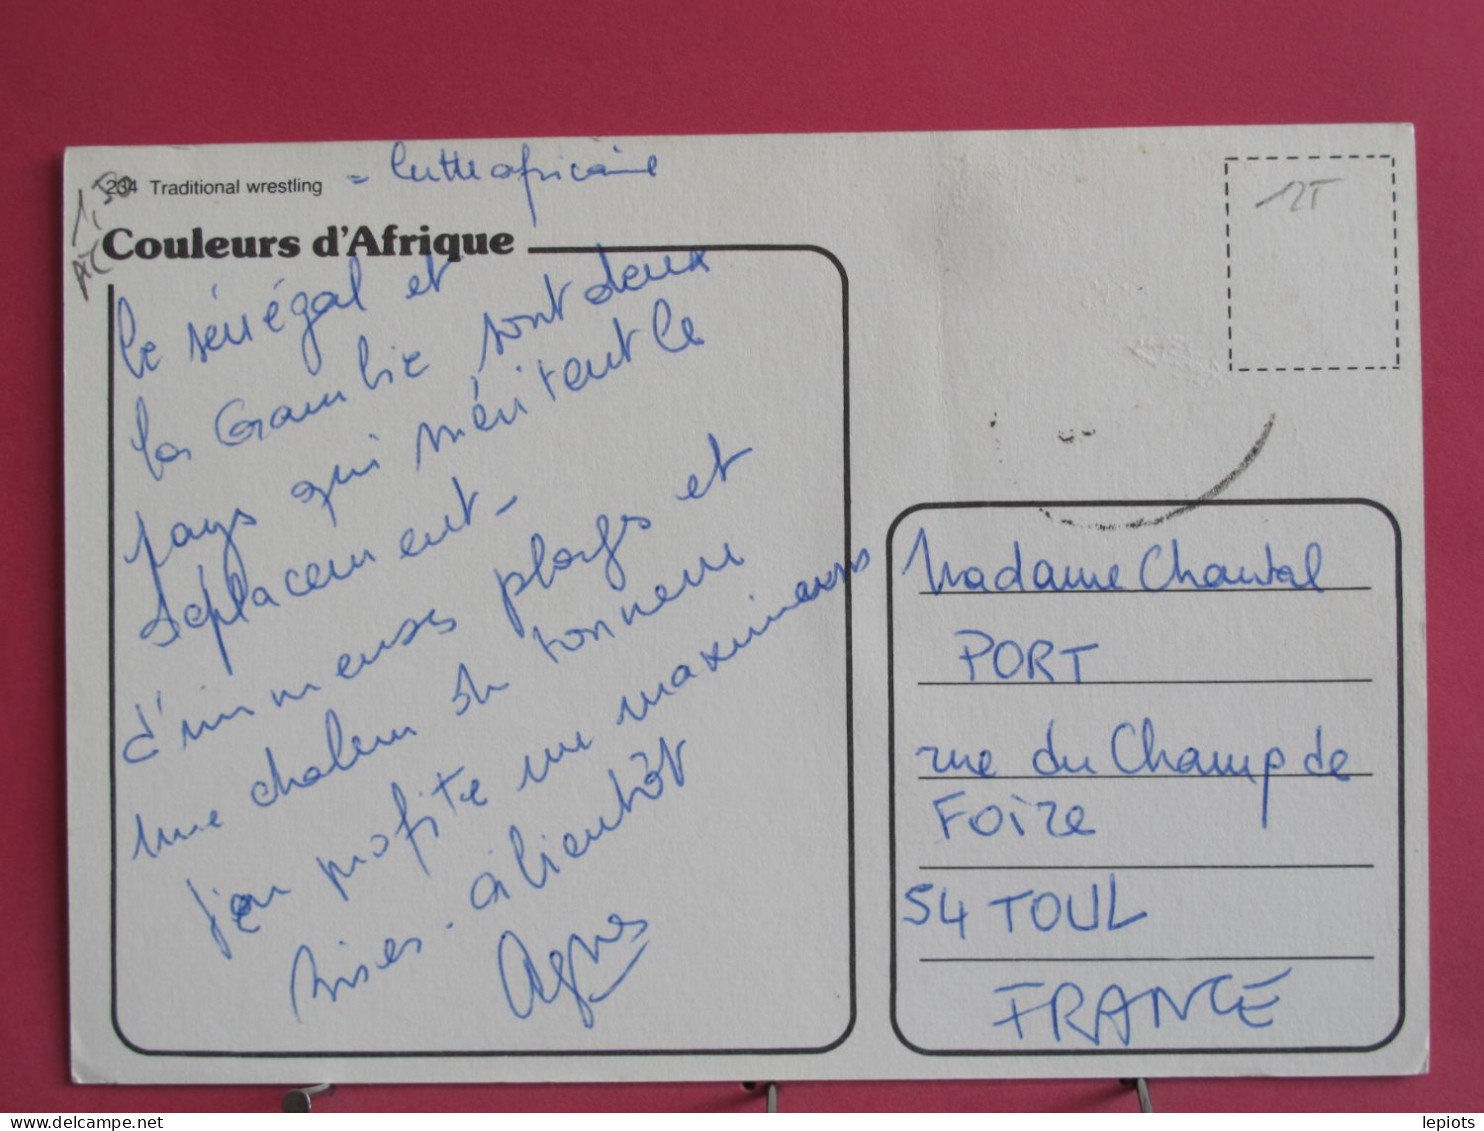 234 Traditional wrestling = lutte africaine
1,50
Couleurs d'Afrique
le sénégal et
la Gambie sont deux
pays qui méritent le
déplacement -
d'immenses plages et
une chaleur du tonnerre
j'en profite un maximum
Bises - à bientôt
Agnes
12T
Madame Chantal
PORT
rue du Champ de
Foire
54 TOUL
FRANCE
lepiots